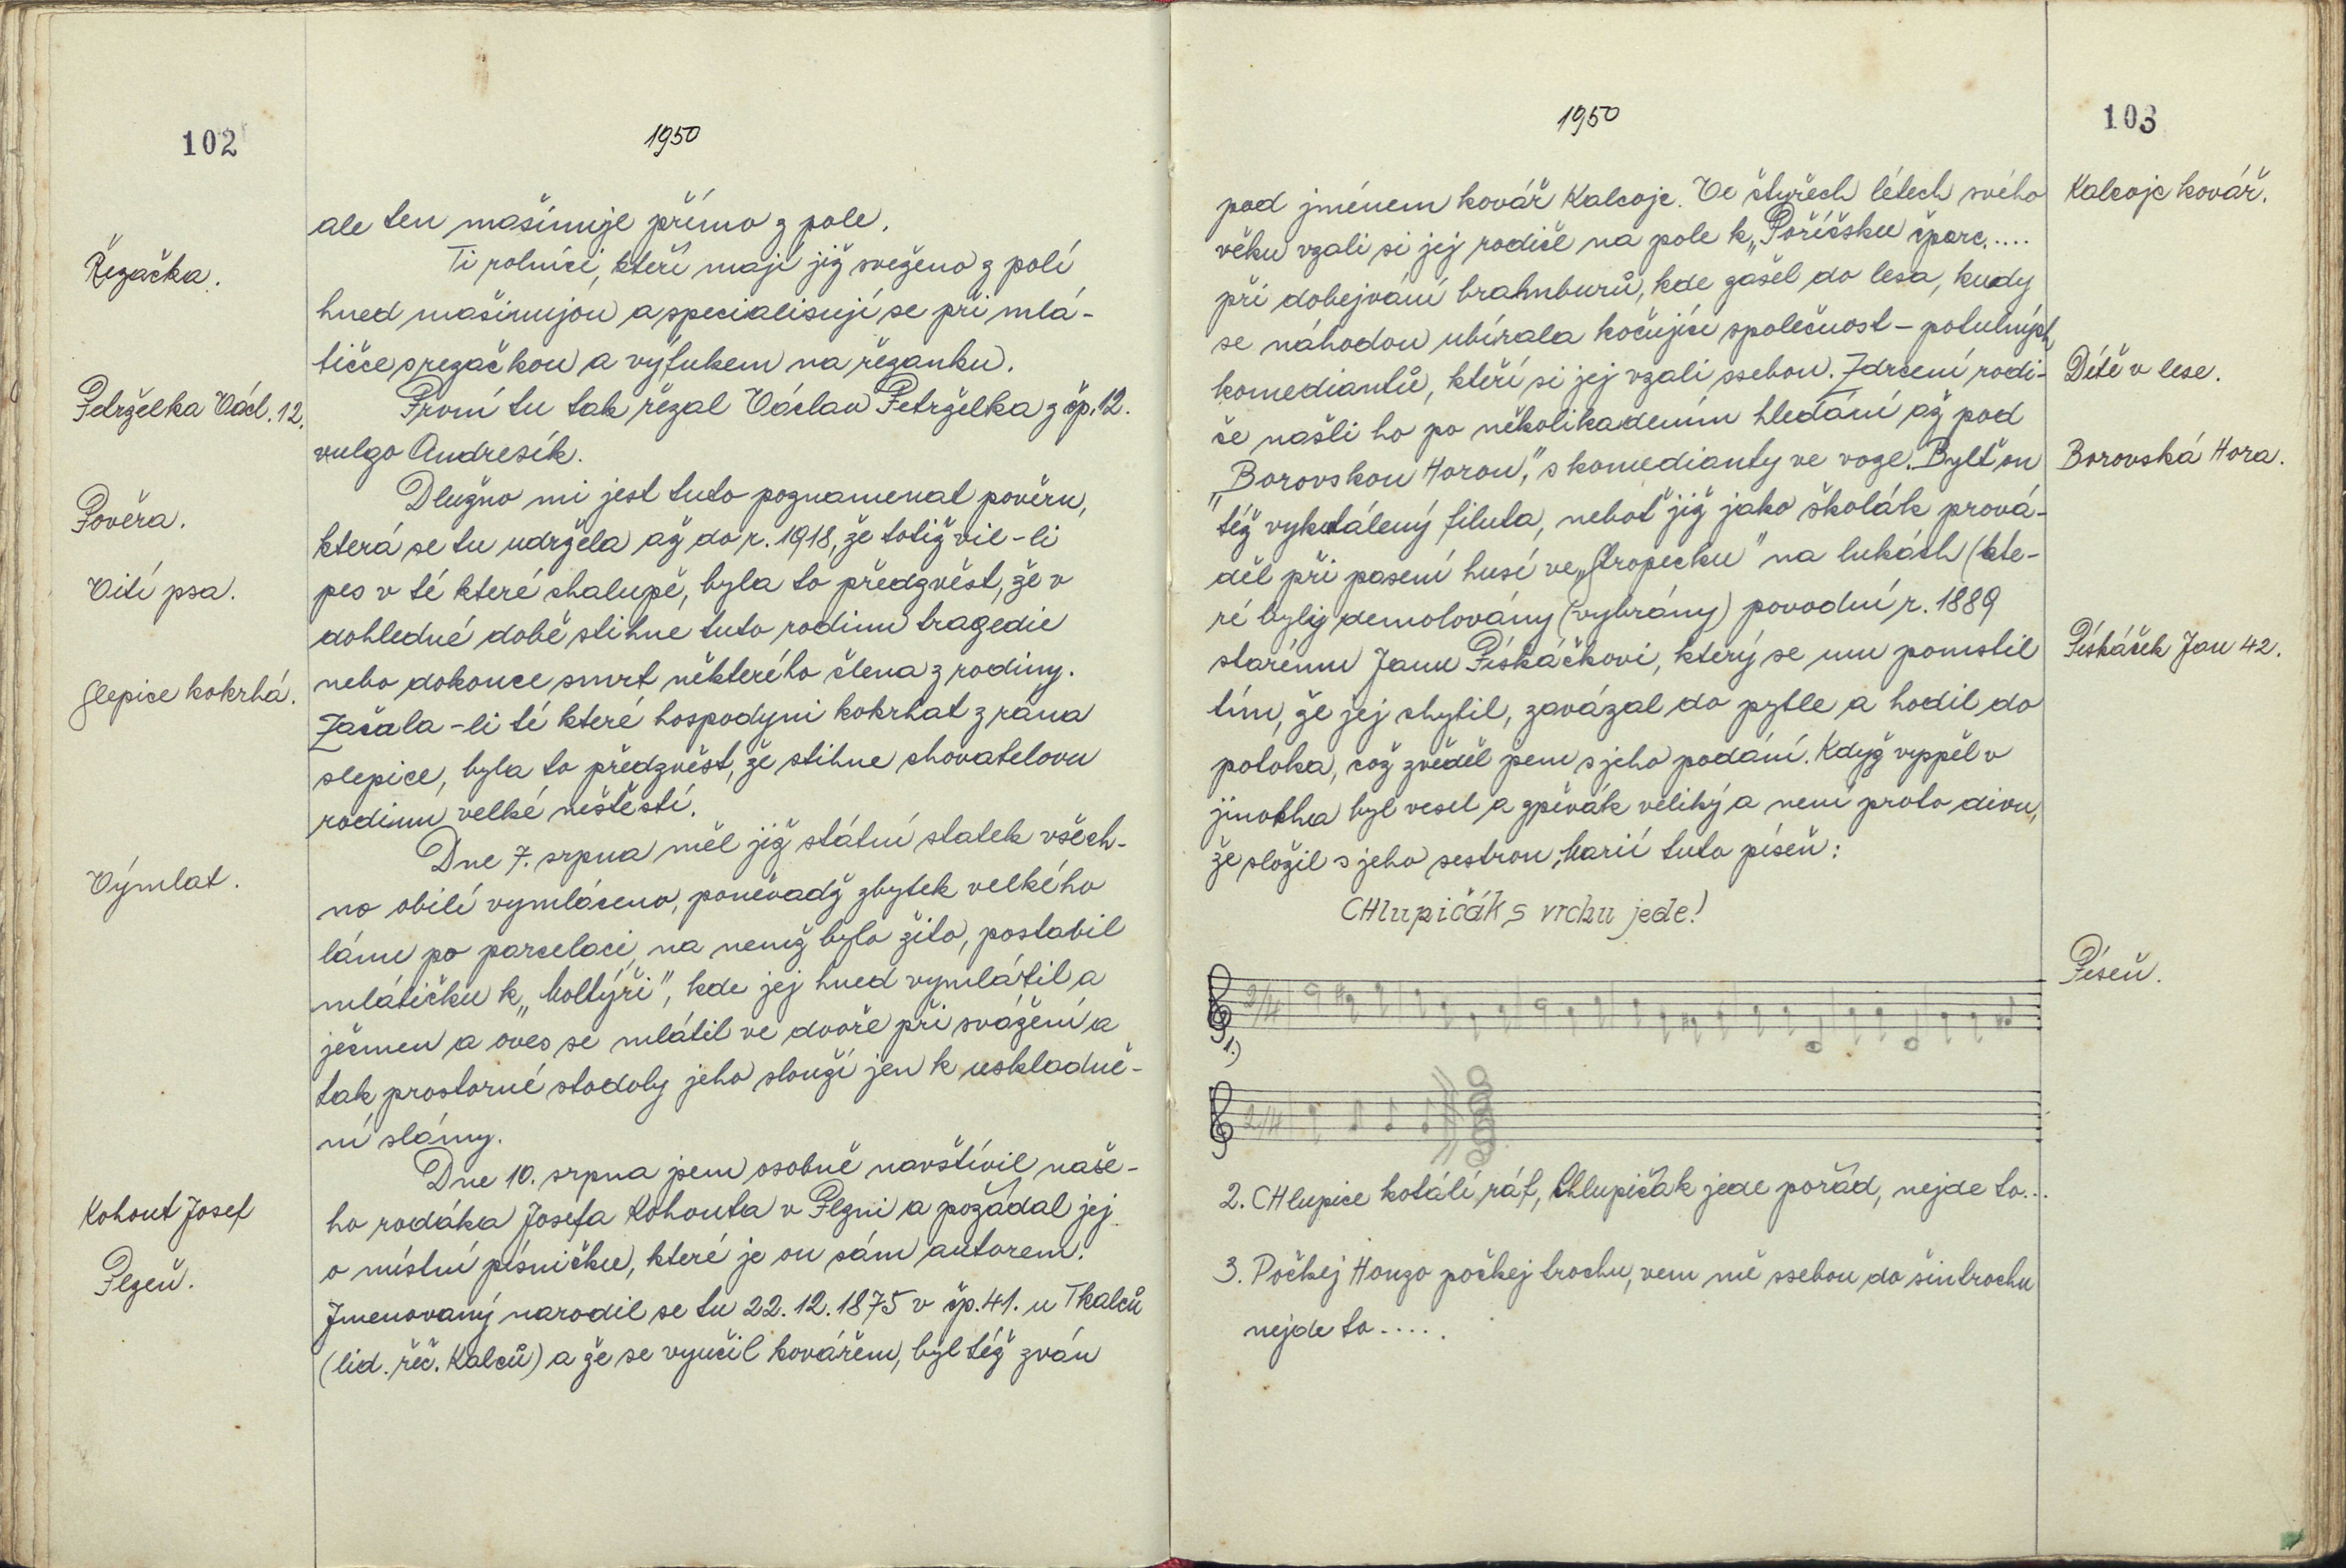 102
1950
ale ten mašinuje přímo z pole.
Řezačka.
Ti rolníci, kteří mají již sveženo z polí
hned mašinujou a specialisují se při mlá-
tičce s rezačkou a výfukem na řezanku.
Petrželka Václ. 12.
První tu tak řezal Václav Petrželka z čp. 12.
vulgo Andresík.
Pověra.
Dlužno mi jest tuto poznamenat pověru,
která se tu udržela až do r. 1918, že totiž vil-li
Vití psa.
pes v té které chalupě, byla to předzvěst, že v
dohledné době stihne tuto rodinu tragedie
nebo dokonce smrt některého člena z rodiny.
Slepice kokrhá.
Začala-li té které hospodyni kokrhat z rána
slepice, byla to předzvěst, že stihne chovatelovu
rodinu velké neštěstí.
Dne 7. srpna měl již státní statek všech-
Výmlat.
no obilí vymláceno, poněvadž zbytek velkého
lánu po parcelaci, na nemž bylo žito, postabil
mlátičku k „Moltýři", kde jej hned vymlátil a
ječmen a oves se mlátil ve dvoře při svážení a
tak prostorné stodoly jeho slouží jen k uskladně-
ní slámy.
Dne 10. srpna jsem osobně navštívil naše-
Kohout Josef
ho rodáka Josefa Kohouta v Plzni a požádal jej
Plzeň.
o místní písničku, které je on sám autorem.
Jmenovaný narodil se tu 22. 12. 1875 v čp. 41. u Tkalců
(lid. řeč. Kalců) a že se vyučil kovářem, byl též zván
103
1950
pod jménem kovář Kalcojc. Ve štyřech létech svého
Kalcojc kovář.
věku vzali si jej rodiče na pole k „Poříčsku čparc.....
při dobejvání brahnburů, kde zašel do lesa, kudy
se náhodou ubírala kočující společnost - potulných
komediantů, kteří si jej vzali ssebou. Zdrcení rodi-
Dítě v lese.
če našli ho po několikadením hledání až pod
„Borovskou Horou," s komedianty ve voze. Bylť on
Borovská Hora.
též vykutálený filuta, neboť již jako školák prová-
děl při pasení husí ve „Stropecku" na lukách (kte-
ré byly demolovány (vybrány) povodní r. 1889
starému Janu Pískáčkovi, který se mu pomstil
Pískáček Jan 42.
tím, že jej chytil, zavázal do pytle a hodil do
potoka, což zvěděl jsem s jeho podání. Když vyspěl v
jinocha byl vesel a zpěvák veliký a není proto divu,
že složil s jeho sestrou Marií tuto píseň:
CHlupičák s vrchu jede!
Píseň.
2/4
1.)
2/4
2. CHlupice kotálí ráf, Chlupičák jede pořád, nejde to...
3. Počkej Honzo počkej trochu, vem mě ssebou do šintrochu
nejde to.....